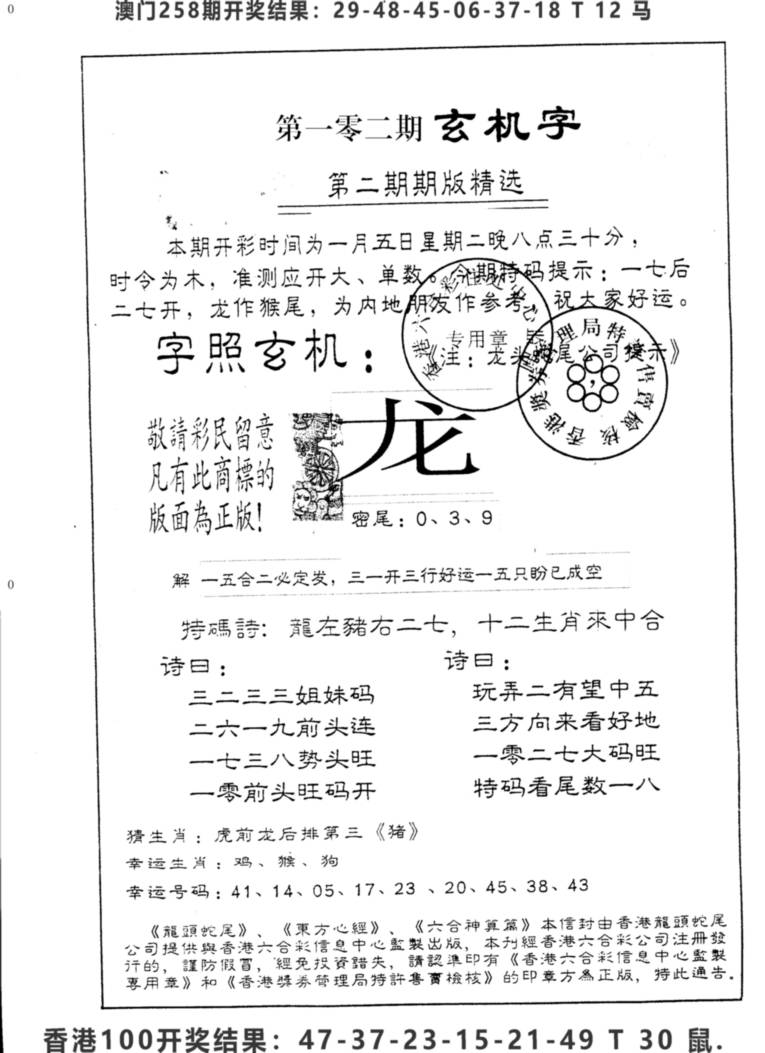 0
澳门258期开奖结果：29-48-45-06-37-18 T 12 马
第一零二期 玄机字
第二期期版精选
本期开彩时间为一月五日星期二晚八点三十分，
时令为木，准测应开大、单数。今期特码提示：一七后
二七开，龙作猴尾，为内地朋友作参考，祝大家好运。
字照玄机：
《注：龙头蛇尾公司提示》
专用章
敬請彩民留意
凡有此商標的
版面為正版！
龙
密尾：0、3、9
0
解 一五合二必定发，三一开三行好运一五只盼已成空
特碼詩：龍左豬右二七，十二生肖來中合
诗曰：
三二三三姐妹码
二六一九前头连
一七三八势头旺
一零前头旺码开
诗曰：
玩弄二有望中五
三方向来看好地
一零二七大码旺
特码看尾数一八
猜生肖：虎前龙后排第三《猪》
幸运生肖：鸡、猴、狗
幸运号码：41、14、05、17、23、20、45、38、43
《龍頭蛇尾》、《東方心經》、《六合神算篇》本信封由香港龍頭蛇尾
公司提供與香港六合彩信息中心監製出版，本刋經香港六合彩公司注冊發
行的，謹防假冒，經免投資錯失，請認準印有《香港六合彩信息中心監製
專用章》和《香港獎券管理局特許售賣檢核》的印章方為正版，特此通告。
香港100开奖结果：47-37-23-15-21-49 T 30 鼠.